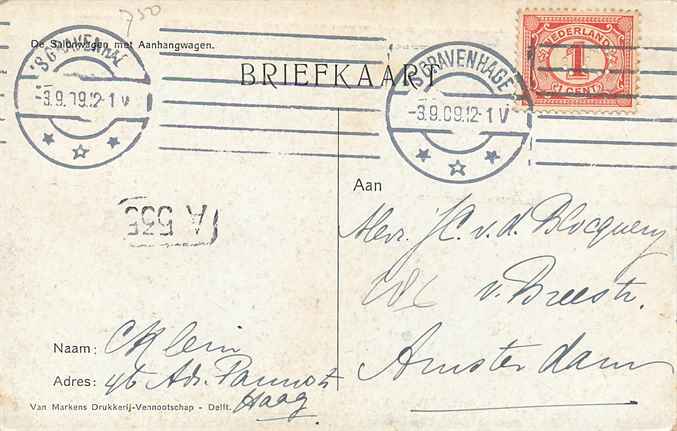 750
De Salonwagen met Aanhangwagen.
BRIEFKAART
'S GRAVENHA
-3.9.09.12-1 V
'S GRAVENHAGE
-3.9.09.12-1 V
NEDERLAND
1
(1 CENT)
A 535
Aan
Mevr. J.C. v. d. Blocquery
v. Breestr.
Amsterdam
Naam: C Klein
Adres: 46 Adr. Pauwstr
Haag
Van Markens Drukkerij-Vennootschap - Delft.